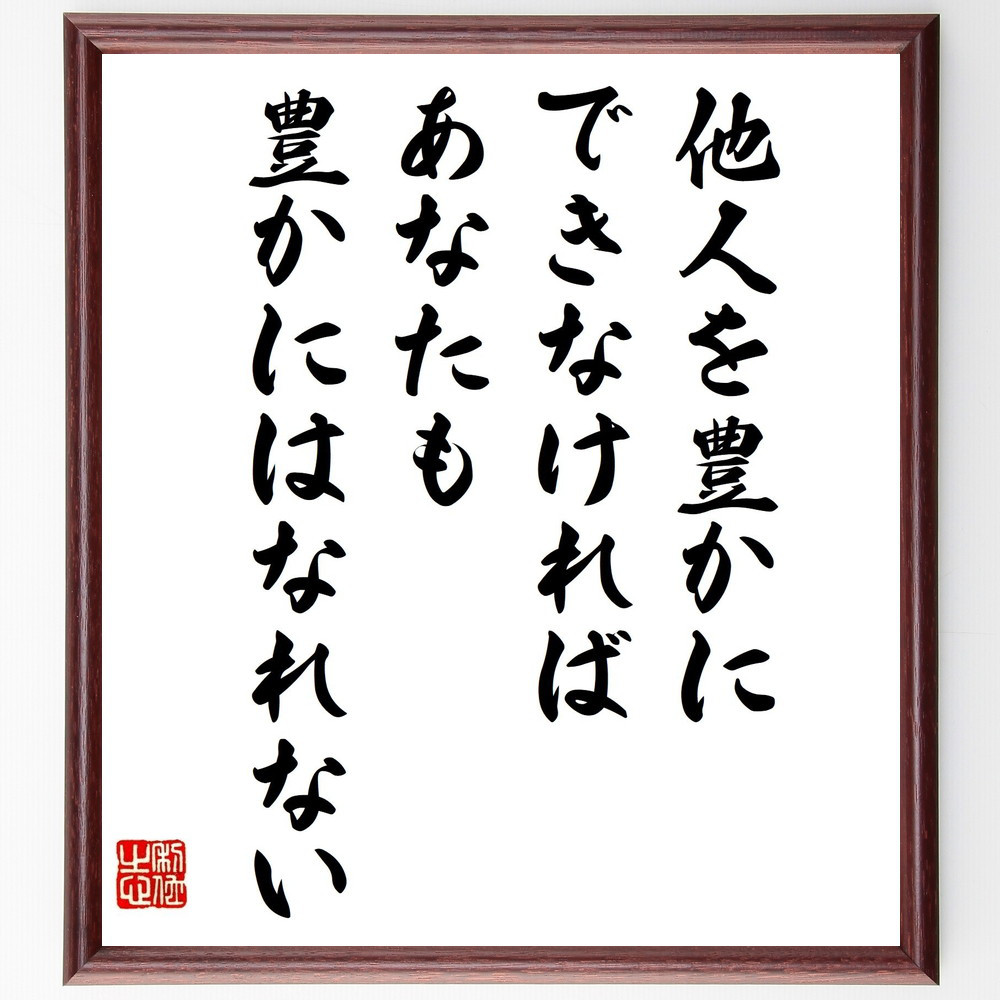 他人を豊かに
できなければ
あなたも
豊かにはなれない